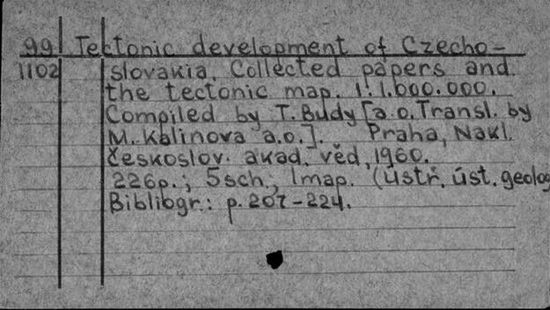 99 Tectonic development of Czecho-
1102 slovakia. Collected papers and
the tectonic map. 1:1.000.000.
Compiled by T. Budy [a.o. Transl. by
M. Kalinova a.o.]. Praha, Nakl.
českoslov. akad. věd, 1960.
226p.; 5sch.; 1map. (ústř. úst. geolog
Bibliogr.: p. 207-224.